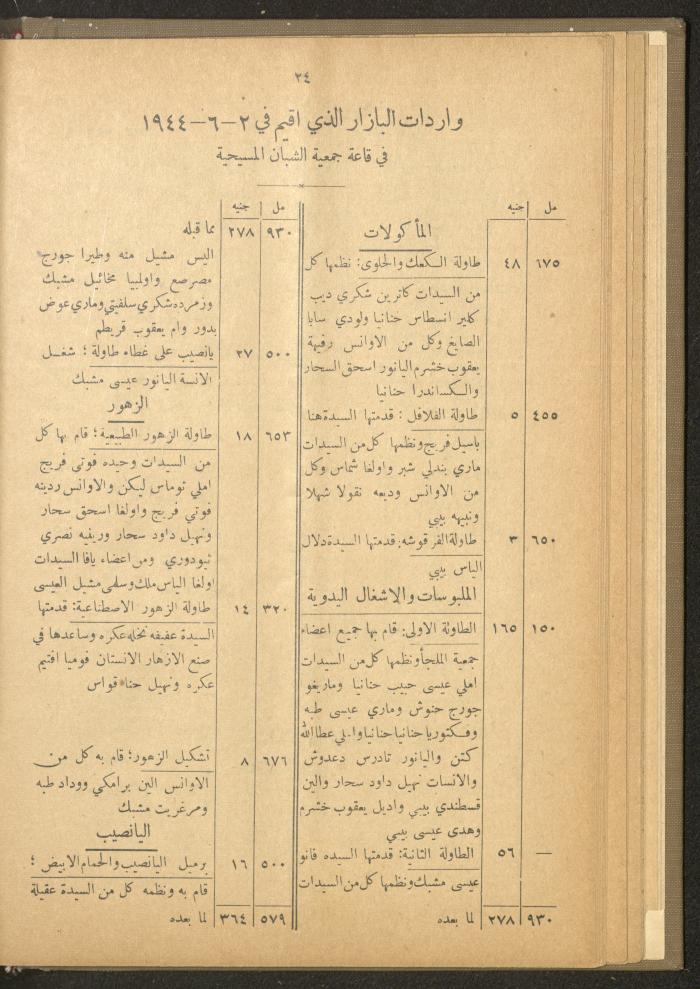 ٢٤
واردات البازار الذي اقيم في ٢-٦-١٩٤٤
في قاعة جمعية الشبان المسيحية
مل جنيه
المأكولات
٦٧٥ ٤٨ طاولة الكعك والحلوى: نظمها كل
من السيدات كاترين شكري ديب
كلير انسطاس حنانيا ولودي سابا
الصايغ وكل من الاوانس رفيقة
يعقوب خشرم اليانور اسحق السحار
والكساندرا حنانيا
٤٥٥ ٥ طاولة الفلافل: قدمتها السيدة هنا
باسيل فريج ونظمها كل من السيدات
ماري بندلي شبر واولغا شماس وكل
من الاوانس وديعه نقولا شهلا
ونبيهه بيبي
٦٥٠ ٣ طاولة القرقوشه: قدمتها السيدة دلال
الياس بيبي
الملبوسات والاشغال اليدوية
١٥٠ ١٦٥ الطاولة الاولى: قام بها جميع اعضاء
جمعية الملجأ ونظمها كل من السيدات
املي عيسى حبيب حنانيا وماريغو
جورج حنوش وماري عيسى طبه
وفكتوريا حنانيا حنانيا وايلي عطاالله
كتن واليانور تادرس دعدوش
والانسات نهيل داود سحار والين
قسطندي بيبي واديل يعقوب خشرم
وهدى عيسى بيبي
— ٥٦ الطاولة الثانية: قدمتها السيده فانو
عيسى مشبك ونظمها كل من السيدات
٩٣٠ ٢٧٨ لما بعده
مل جنيه
٩٣٠ ٢٧٨ مما قبله
اليس مشيل منه وظيرا جورج
مصرصع واولمبيا مخائيل مشبك
وزمرده شكري سلفيتي وماري عوض
بدور وام يعقوب قريطم
٥٠٠ ٢٧ يانصيب على غطاء طاولة؛ شغل
الانسة اليانور عيسى مشبك
الزهور
٦٥٣ ١٨ طاولة الزهور الطبيعية؛ قام بها كل
من السيدات وحيده فوتي فريج
املي توماس ليكن والاوانس ردينه
فوتي فريج واولغا اسحق سحار
ونهيل داود سحار ورينيه نصري
تيودوري ومن اعضاء يافا السيدات
اولغا الياس ملك وسلمى مشيل العيسى
٣٢٠ ١٤ طاولة الزهور الاصطناعية: قدمتها
السيدة عفيفه نخله عكره وساعدها في
صنع الازهار الانستان فوميا افتيم
عكره ونهيل حنا قواس
٦٧٦ ٨ تشكيل الزهور؛ قام به كل من
الاوانس الين برامكي ووداد طبه
ومرغريت مشبك
اليانصيب
٥٠٠ ١٦ برميل اليانصيب والحمام الابيض؛
قام به ونظمه كل من السيدة عقيلة
٥٧٩ ٣٦٤ لما بعده